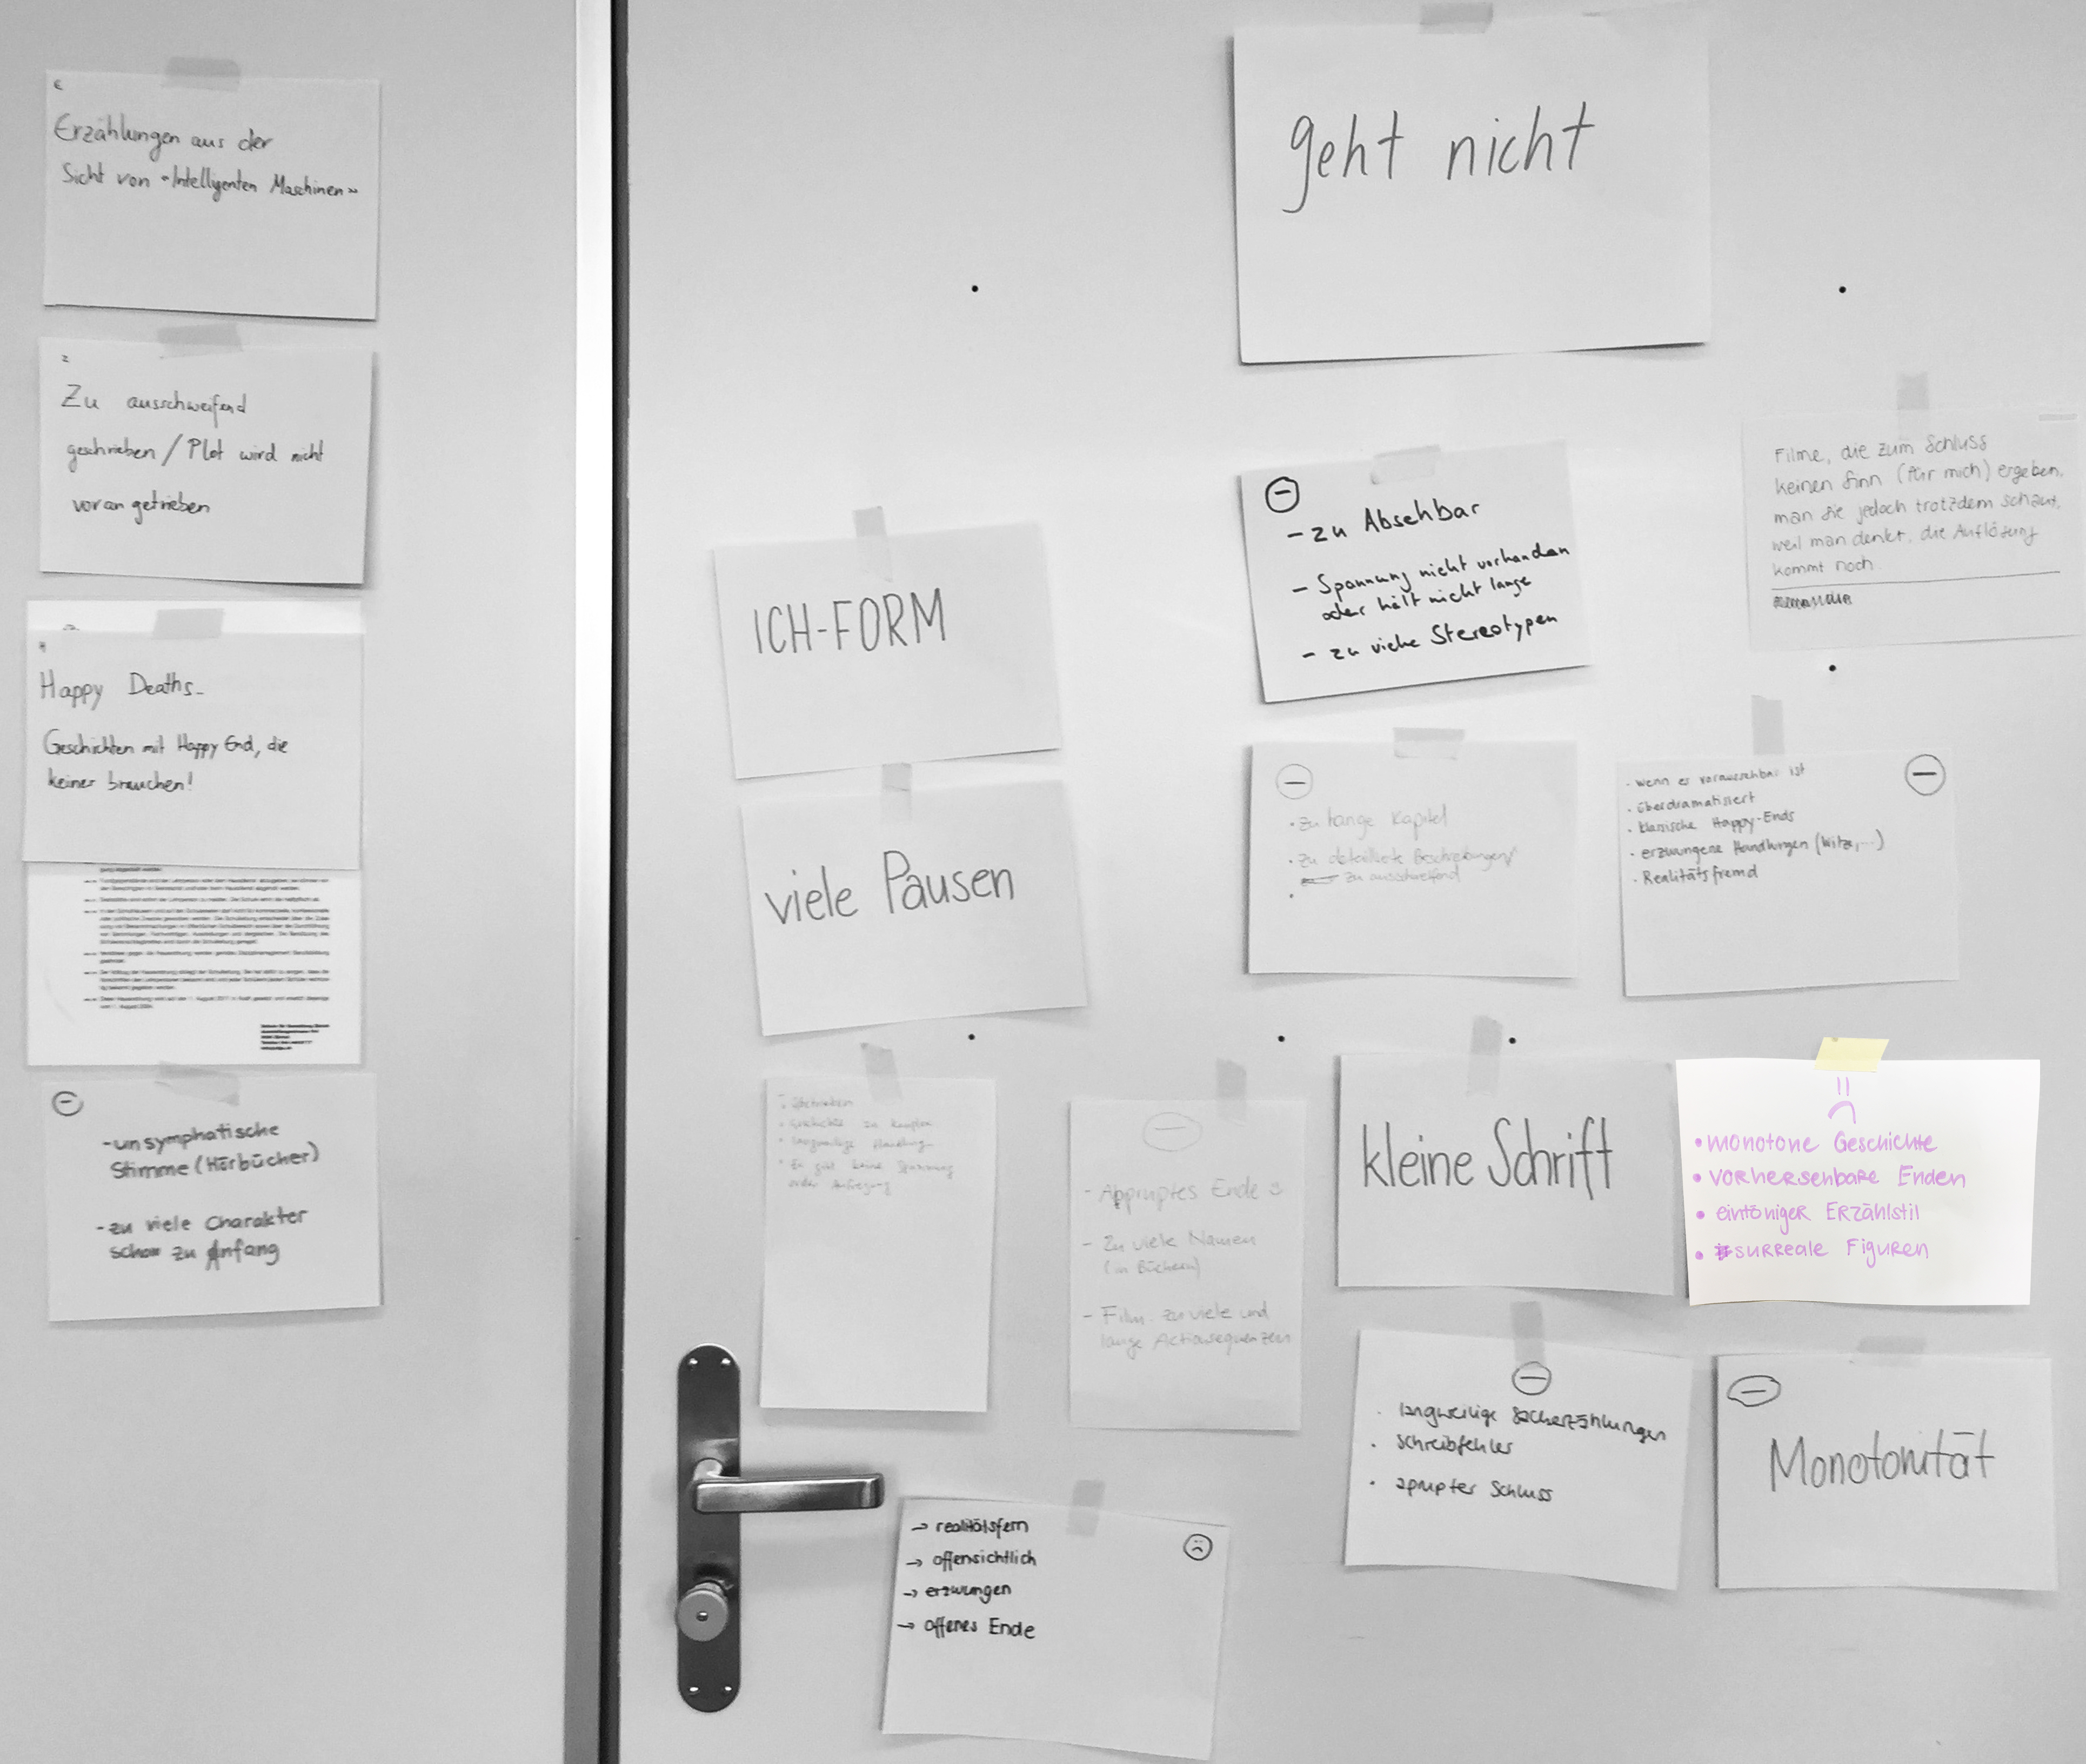 Erzählungen aus der
Sicht von «Intelligenten Maschinen»
Zu ausschweifend
geschrieben / Plot wird nicht
voran getrieben
Happy Deaths-
Geschichten mit Happy End, die
keiner brauchen!
- unsymphatische
Stimme (Hörbücher)
- zu viele Charakter
schon zu Anfang
geht nicht
ICH-FORM
viele Pausen
- zu Absehbar
- Spannung nicht vorhanden
oder hält nicht lange
- zu viele Stereotypen
Filme, die zum Schluss
keinen Sinn (für mich) ergeben,
man sie jedoch trotzdem schaut,
weil man denkt, die Auflösung
kommt noch.
• zu lange Kapitel
• zu detaillierte Beschreibungen
zu ausschweifend
• wenn es voraussehbar ist
• überdramatisiert
• klassische Happy-Ends
• erzwungene Handlungen (Witze,...)
• Realitätsfremd
• Geschichte zu komplex
• langweilige Handlung
• Es gibt keine Spannung
oder Aufregung
- Appruptes Ende
- Zu viele Namen
(in Büchern)
- Film: zu viele und
lange Actionsequenzen
kleine Schrift
• monotone Geschichte
• vorhersehbare Enden
• eintöniger Erzählstil
• surreale Figuren
• langweilige Sacherzählungen
• Schreibfehler
• aprupter Schluss
Monotonität
→ realitätsfern
→ offensichtlich
→ erzwungen
→ offenes Ende